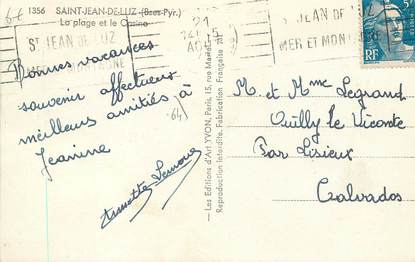 6€
1356 SAINT-JEAN-DE-LUZ (Bses-Pyr.)
La plage et le Casino
ST JEAN DE LUZ
MER ET MONTAGNE
21
AOUT
ST JEAN DE
MER ET MON
RF
Bonnes vacances
souvenir affectueux
meilleures amitiés à
Jeanine
(64)
Annette Lemoine
— Les Editions d'Art YVON, Paris, 15, rue Martel —
Reproduction interdite. Fabrication Française
M. et Mme Legrand
Ouilly le Vicomte
Par Lisieux
Calvados